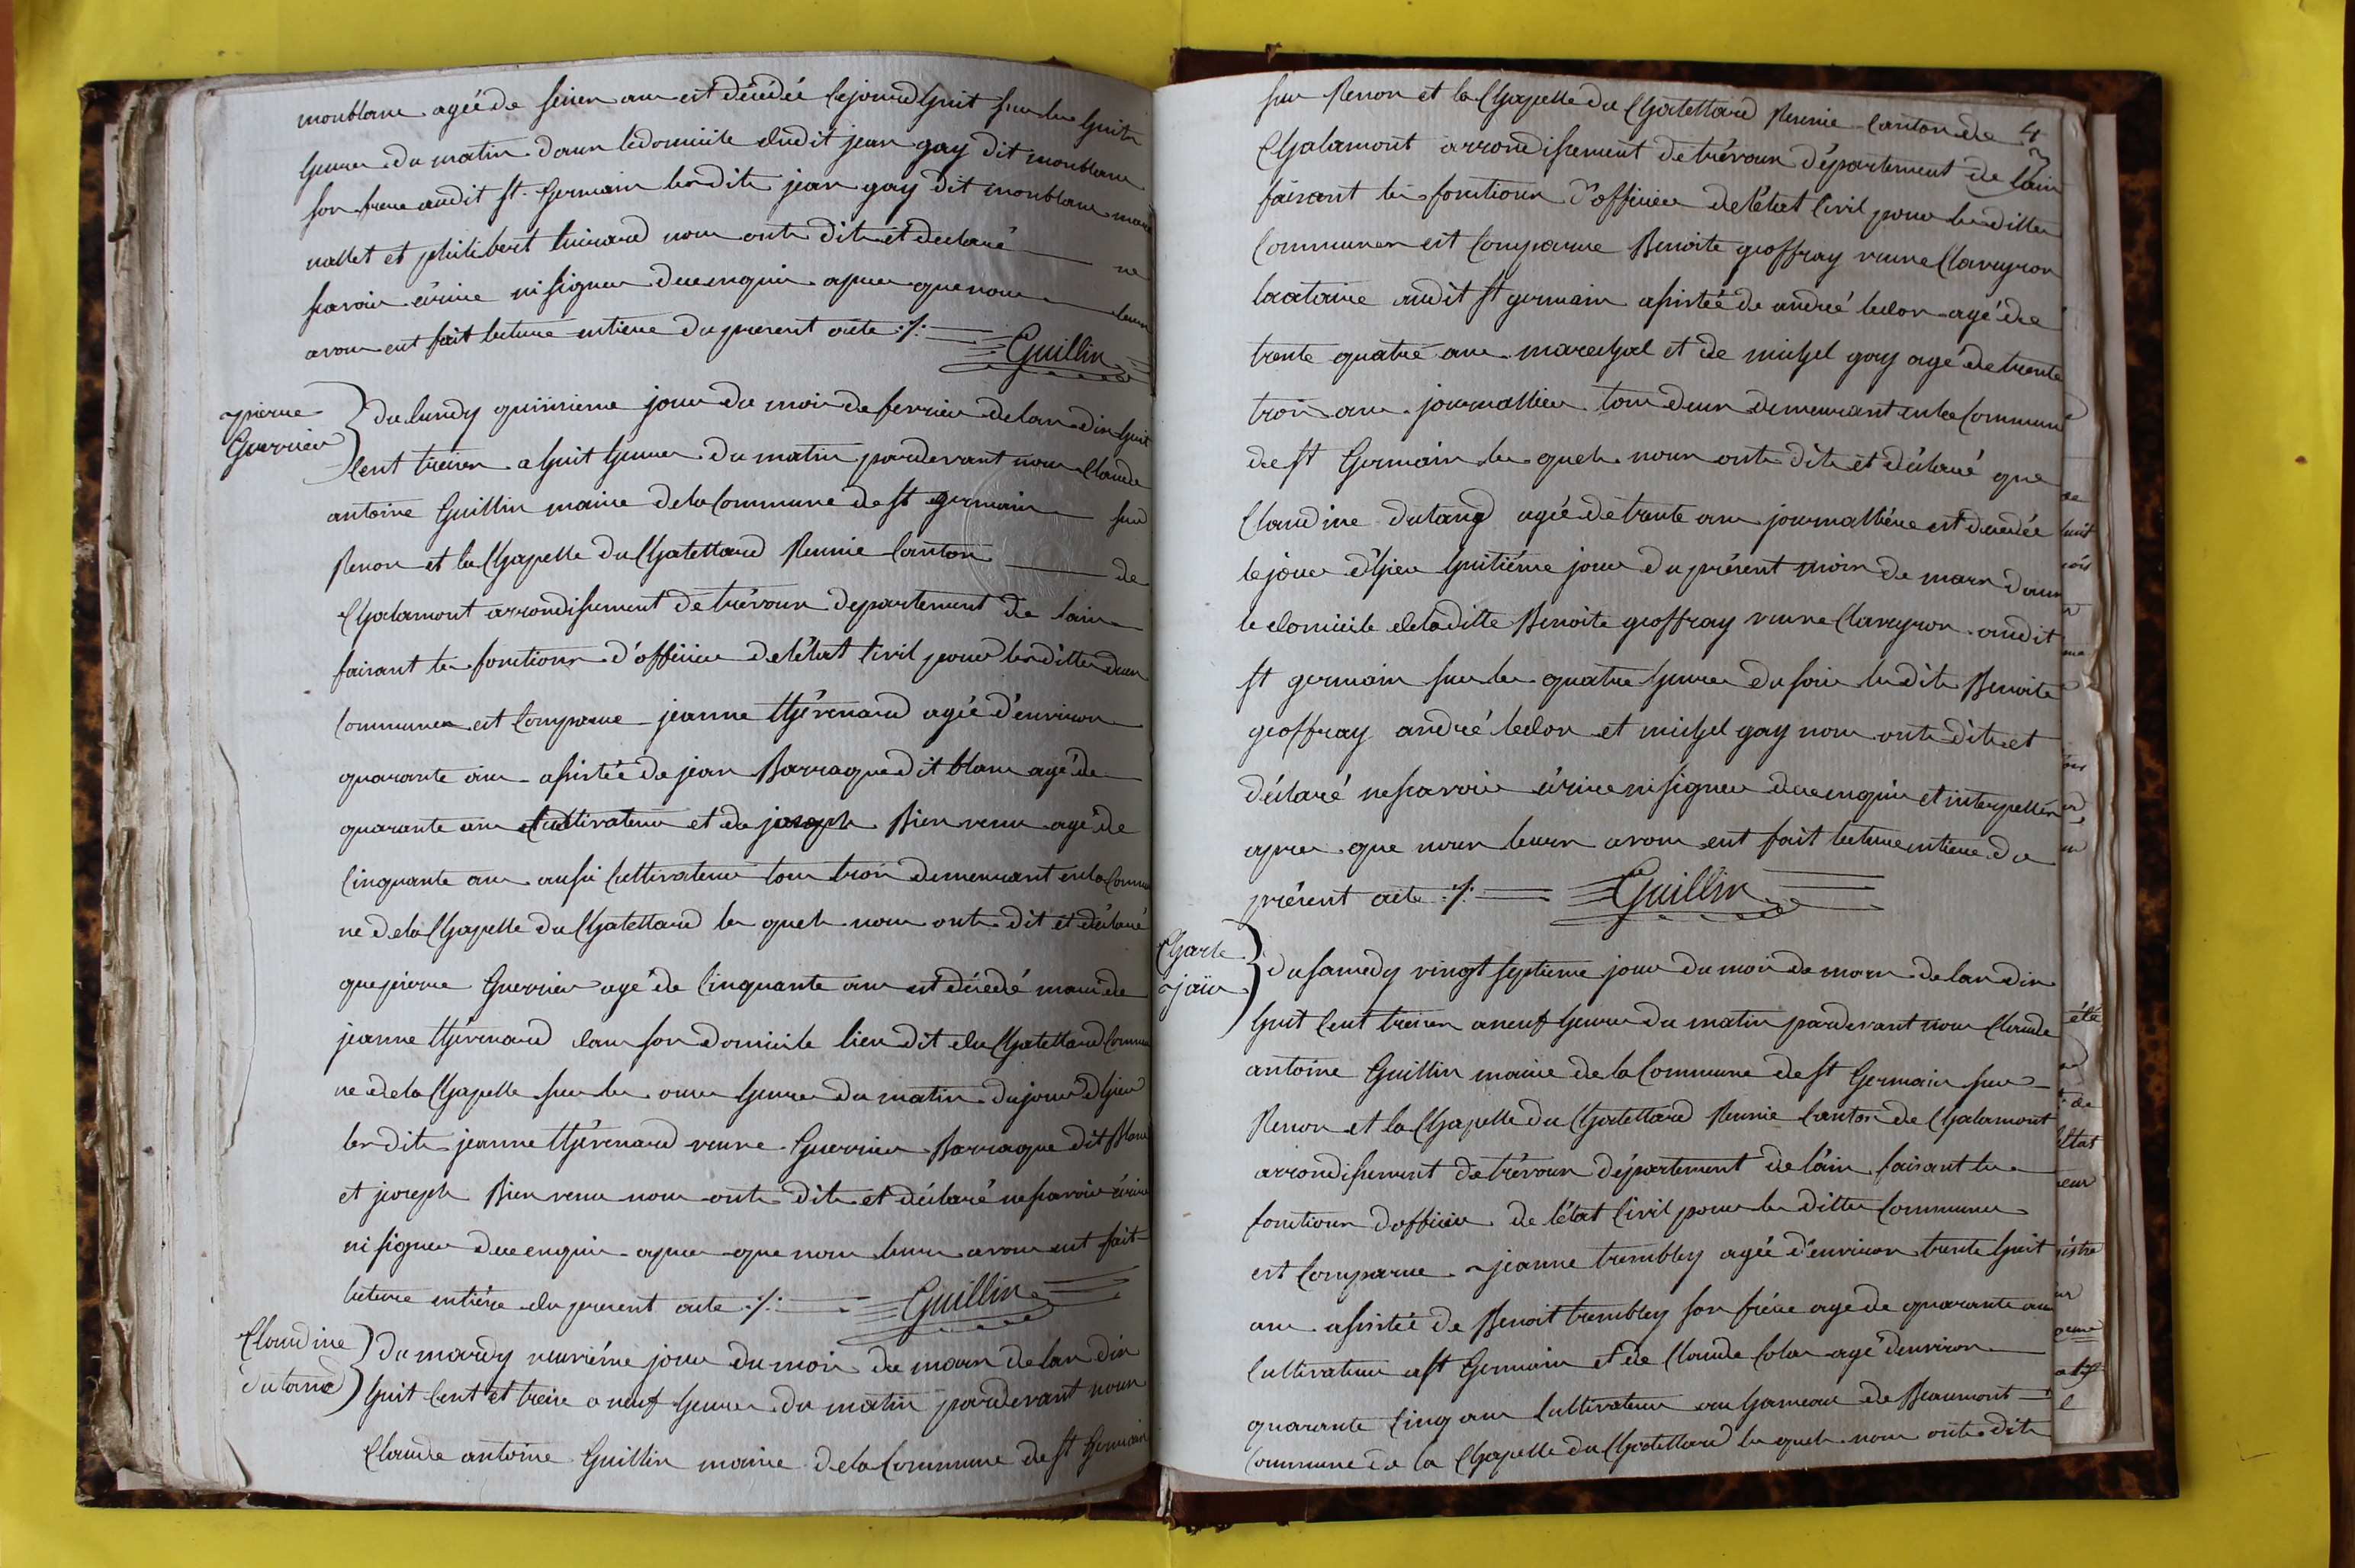 monblanc agée de seizes ans est décédée cejourdhuit sur les huits
heures du matin dans ledomicile dudit jean gay dit monblanc
son frere audit st. Germain lesdits jean gay dit monblanc
nallet et philibert nous onts dits et declaré ne
savoir écrire ni signer de ce enquis apres que nous leurs
avons ent fait lecture entiere du present acte ./.
Guillin
pierre
Guerrier
du lundy quinsieme jour du mois de fevrier de lan dix huit
Cent treizes a huit heures du matin pardevant nous Claude
antoine Guillin maire de la Commune de st germain sur
Renon et la Chapelle du Chatellard Reunie Canton de
Chalamont arrondisement de trévoux departement de lain
faisant les fonctions d'officier de l'état Civil pour lesdittes deux
Communes est Comparue jeanne thévenard agée d'environ
quarante ans asistée de jean Barraque dit blanc agé de
quarante ans Cultivateur et de joseph Bien venu agé de
Cinquante ans ausi Cultivateur tous trois demeurant en la Commu
ne de la Chapelle du Chatellard les quels nous onts dit et déclaré
que pierre Guerrier agé de Cinquante ans est décédé mari de
jeanne thévenard dans son domicile lieu dit du Chatellard Commu
ne de la Chapelle sur les onze heures du matin du jour dhier
lesdits jeanne thévenard veuve Guerrier Barraque dit Blanc
et joseph Bien venu nous onts dits et déclaré ne savoir écrire
ni signer de ce enquis apres que nous leurs avons ent fait
lecture entiére du present acte ./.
Guillin
Claudine
dutand
du mardy neuviéme jour du mois de mars de lan dix
huit Cent et treize a neuf heures du matin pardevant nous
Claude antoine Guillin maire de la Commune de st Germain
4
sur Renon et la Chapelle du Chatellard Reunie Canton de
Chalamont arrondisement de trévoux département de lain
faisant les fonctions d'officier de l'état Civil pour lesdittes
Communes est Comparue Benoite geoffray veuve Claveyron
locataire audit st germain asistée de andré bedor agé de
trente quatre ans marechal et de michel gay agé de trente
trois ans journallier tous deux demeurant en la Commune
de st Germain les quels nous onts dits et déclaré que
Claudine dutang agée de trente ans journalliére est décédée
le jour d'hier huitiéme jour du présent mois de mars dans
le domicile de laditte Benoite geoffray veuve Claveyron audit
st germain sur les quatre heures du soir lesdits Benoite
geoffray andré bedor et michel gay nous onts dits et
déclaré ne savoir écrire ni signer de ce enquis et interpellés
apres que nous leurs avons ent fait lecture entiere du
présent acte ./.
Guillin
Charle
jaïr
du samedy vingt septieme jour du mois de mars de lan dix
huit Cent treizes a neuf heures du matin pardevant nous Claude
antoine Guillin maire de la Commune de st Germain sur
Renon et la Chapelle du Chatellard Reunie Canton de Chalamont
arrondisement de trévoux département de l'ain faisant les
fonctions d'officier de l'état Civil pour les dittes Communes
est Comparue jeanne trembley agée d'environ trente huit
ans asistée de Benoit trembley son frére agé de quarante ans
Cultivateur a st Germain et de Claude Colas agé d'environ
quarante Cinq ans Cultivateur au hameau de Beaumont
Commune de la Chapelle du Chatellard les quels nous onts dits